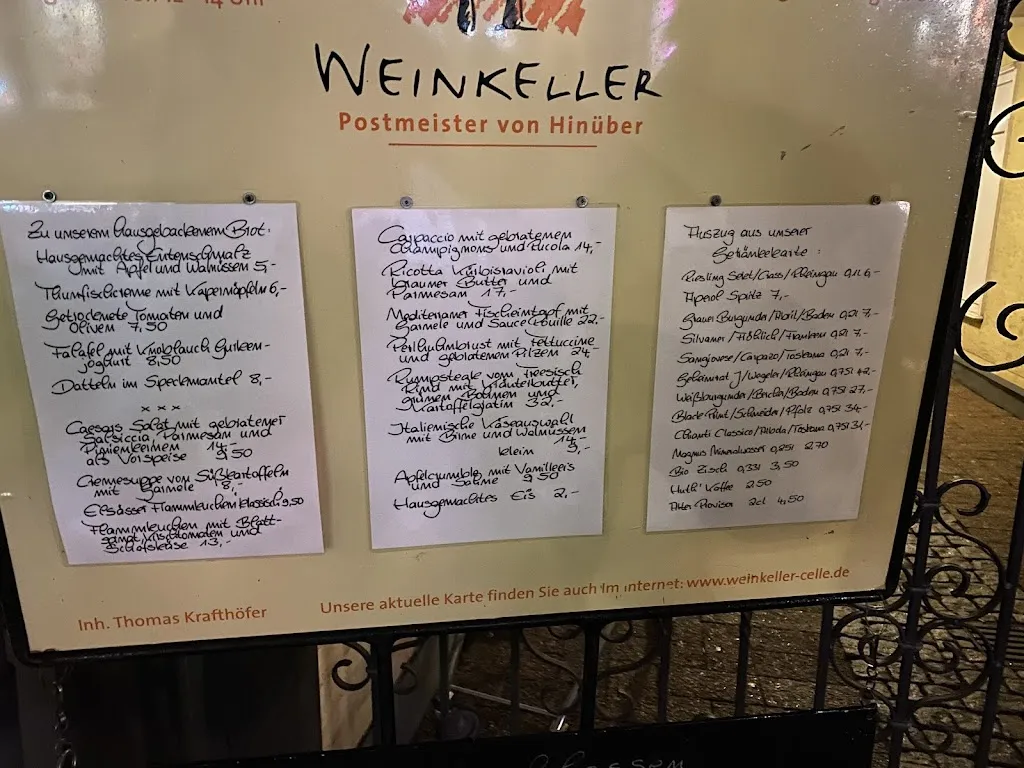 WEINKELLER
Postmeister von Hinüber
Zu unserem hausgebackenem Brot:
Hausgemachtes Entenschmalz
mit Apfel und Walnüssen 5,-
Thunfischcreme mit Kapernäpfeln 6,-
Getrocknete Tomaten und
Oliven 7,50
Falafel mit Knoblauch Gurken-
joghurt 8,50
Datteln im Speckmantel 8,-
x x x
Caesars Salat mit gebratener
Salsiccia, Parmesan und
Pinienkernen 14,-
als Vorspeise 9,50
Cremesuppe von Süßkartoffeln
mit Garnele 8,-
Elsässer Flammkuchen klassisch 9,50
Flammkuchen mit Blatt-
spinat, Kirschtomaten und
Schafskäse 13,-
Carpaccio mit gebratenen
Champignons und Rucola 14,-
Ricotta Kürbisravioli mit
brauner Butter und
Parmesan 17,-
Mediterraner Fischeintopf mit
Garnele und Sauce Rouille 22,-
Perlhuhnbrust mit Fettuccine
und gebratenen Pilzen 24,-
Rumpsteak vom Friesisch
Rind mit Kräuterbutter,
grünen Bohnen und
Kartoffelgratin 32,-
Italienische Käseauswahl
mit Birne und Walnüssen
14,-
klein 9,-
Apfelcrumble mit Vanilleeis
und Sahne 9,50
Hausgemachtes Eis 2,-
Auszug aus unserer
Getränkekarte:
Riesling Sekt/Crass/Rheingau 0,1l 6,-
Aperol Spritz 7,-
Grauer Burgunder/Abril/Baden 0,2l 7,-
Silvaner/Fröhlich/Franken 0,2l 7,-
Sangiovese/Carparzo/Toskana 0,2l 7,-
Geheimrat J/Wegeler/Rheingau 0,75l 42,-
Weißburgunder/Bercher/Baden 0,75l 27,-
Black Print/Schneider/Pfalz 0,75l 34,-
Chianti Classico/Toskana 0,75l 31,-
Magnus Mineralwasser 0,25l 2,70
Bio Zisch 0,33l 3,50
Huth' Kaffee 2,50
Alter Provisor 2cl 4,50
Inh. Thomas Krafthöfer
Unsere aktuelle Karte finden Sie auch im Internet: www.weinkeller-celle.de